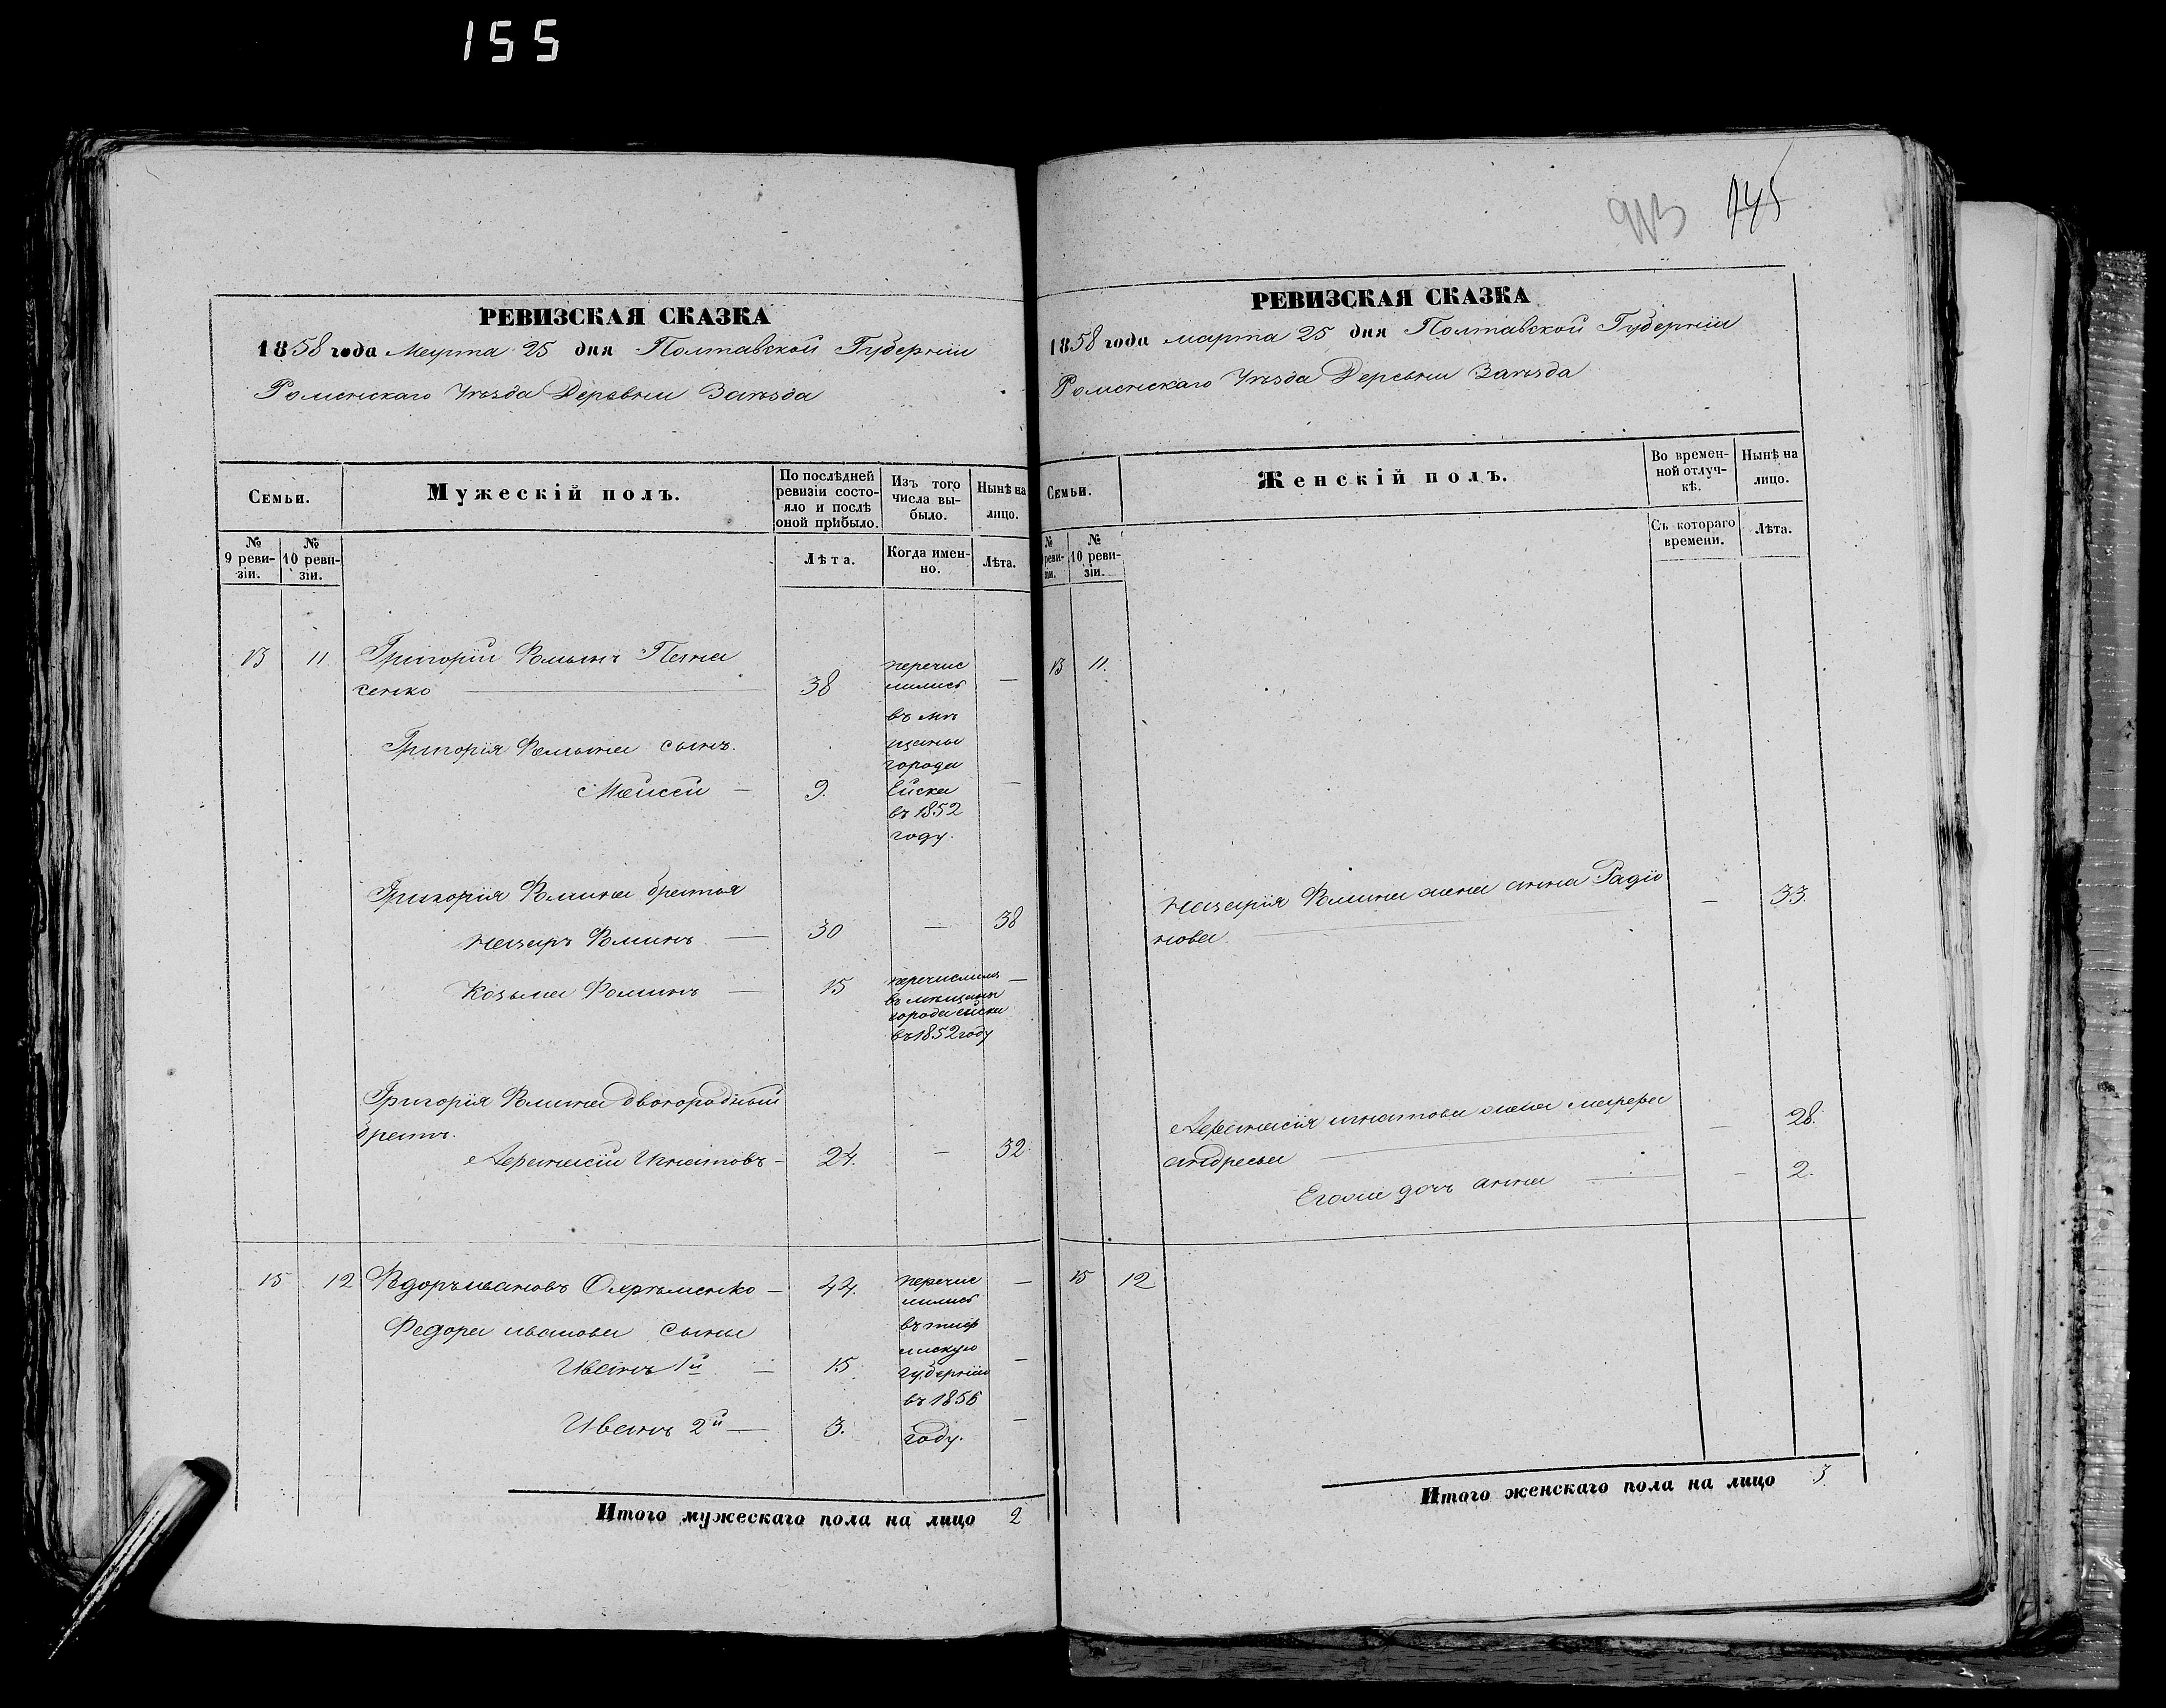 155
РЕВИЗСКАЯ СКАЗКА
1858 года Марта 25 дня Полтавской Губерніи
Роменскаго Уѣзда Деревни Заѣзда
Семьи.
Мужескій полъ.
По послѣдней ревизіи состояло и послѣ оной прибыло.
Изъ того числа выбыло.
Нынѣ на лицо.
№ 9 ревизіи.
№ 10 ревизіи.
Лѣта.
Когда именно.
Лѣта.
13 11 Григорій Фоминъ
сенко — 38 —
Григорія Фомина сынъ.
Моисей — 9. —
перечис
лились
въ мѣ
щаны
города
Ейска
въ 1852
году.
Григорія Фомина братья
Назаръ Фоминъ — 30 — 38
Козьма Фоминъ — 15 —
перечислилъ
въ мѣщаны
города Ейска
въ 1852 году
Григорія Фомина двоюродный
братъ.
Афанасій Игнатовъ - 24. — 32.
15 12 Ѳедоръ Ивановъ — 44. —
Федора Иванова сыны
Иванъ 1й — 15. —
Иванъ 2й — 3. —
перечис
лились
въ тиф
лискую
губернію
въ 1856
году.
Итого мужескаго пола на лицо 2
945
РЕВИЗСКАЯ СКАЗКА
1858 года марта 25 дня Полтавской Губерніи
Роменскаго Уѣзда Деревни Заѣзда
Семьи.
Женскій полъ.
Во временной отлучкѣ.
Нынѣ на лицо.
№ ревизіи.
№ 10 ревизіи.
Съ котораго времени.
Лѣта.
13 11.
Назарія Фомина жена анна Радіо — 33.
нова.
Афанасія игнатова жена марфа — 28.
андреева
Егоже дочь анна — 2.
15 12
Итого женскаго пола на лицо 3.